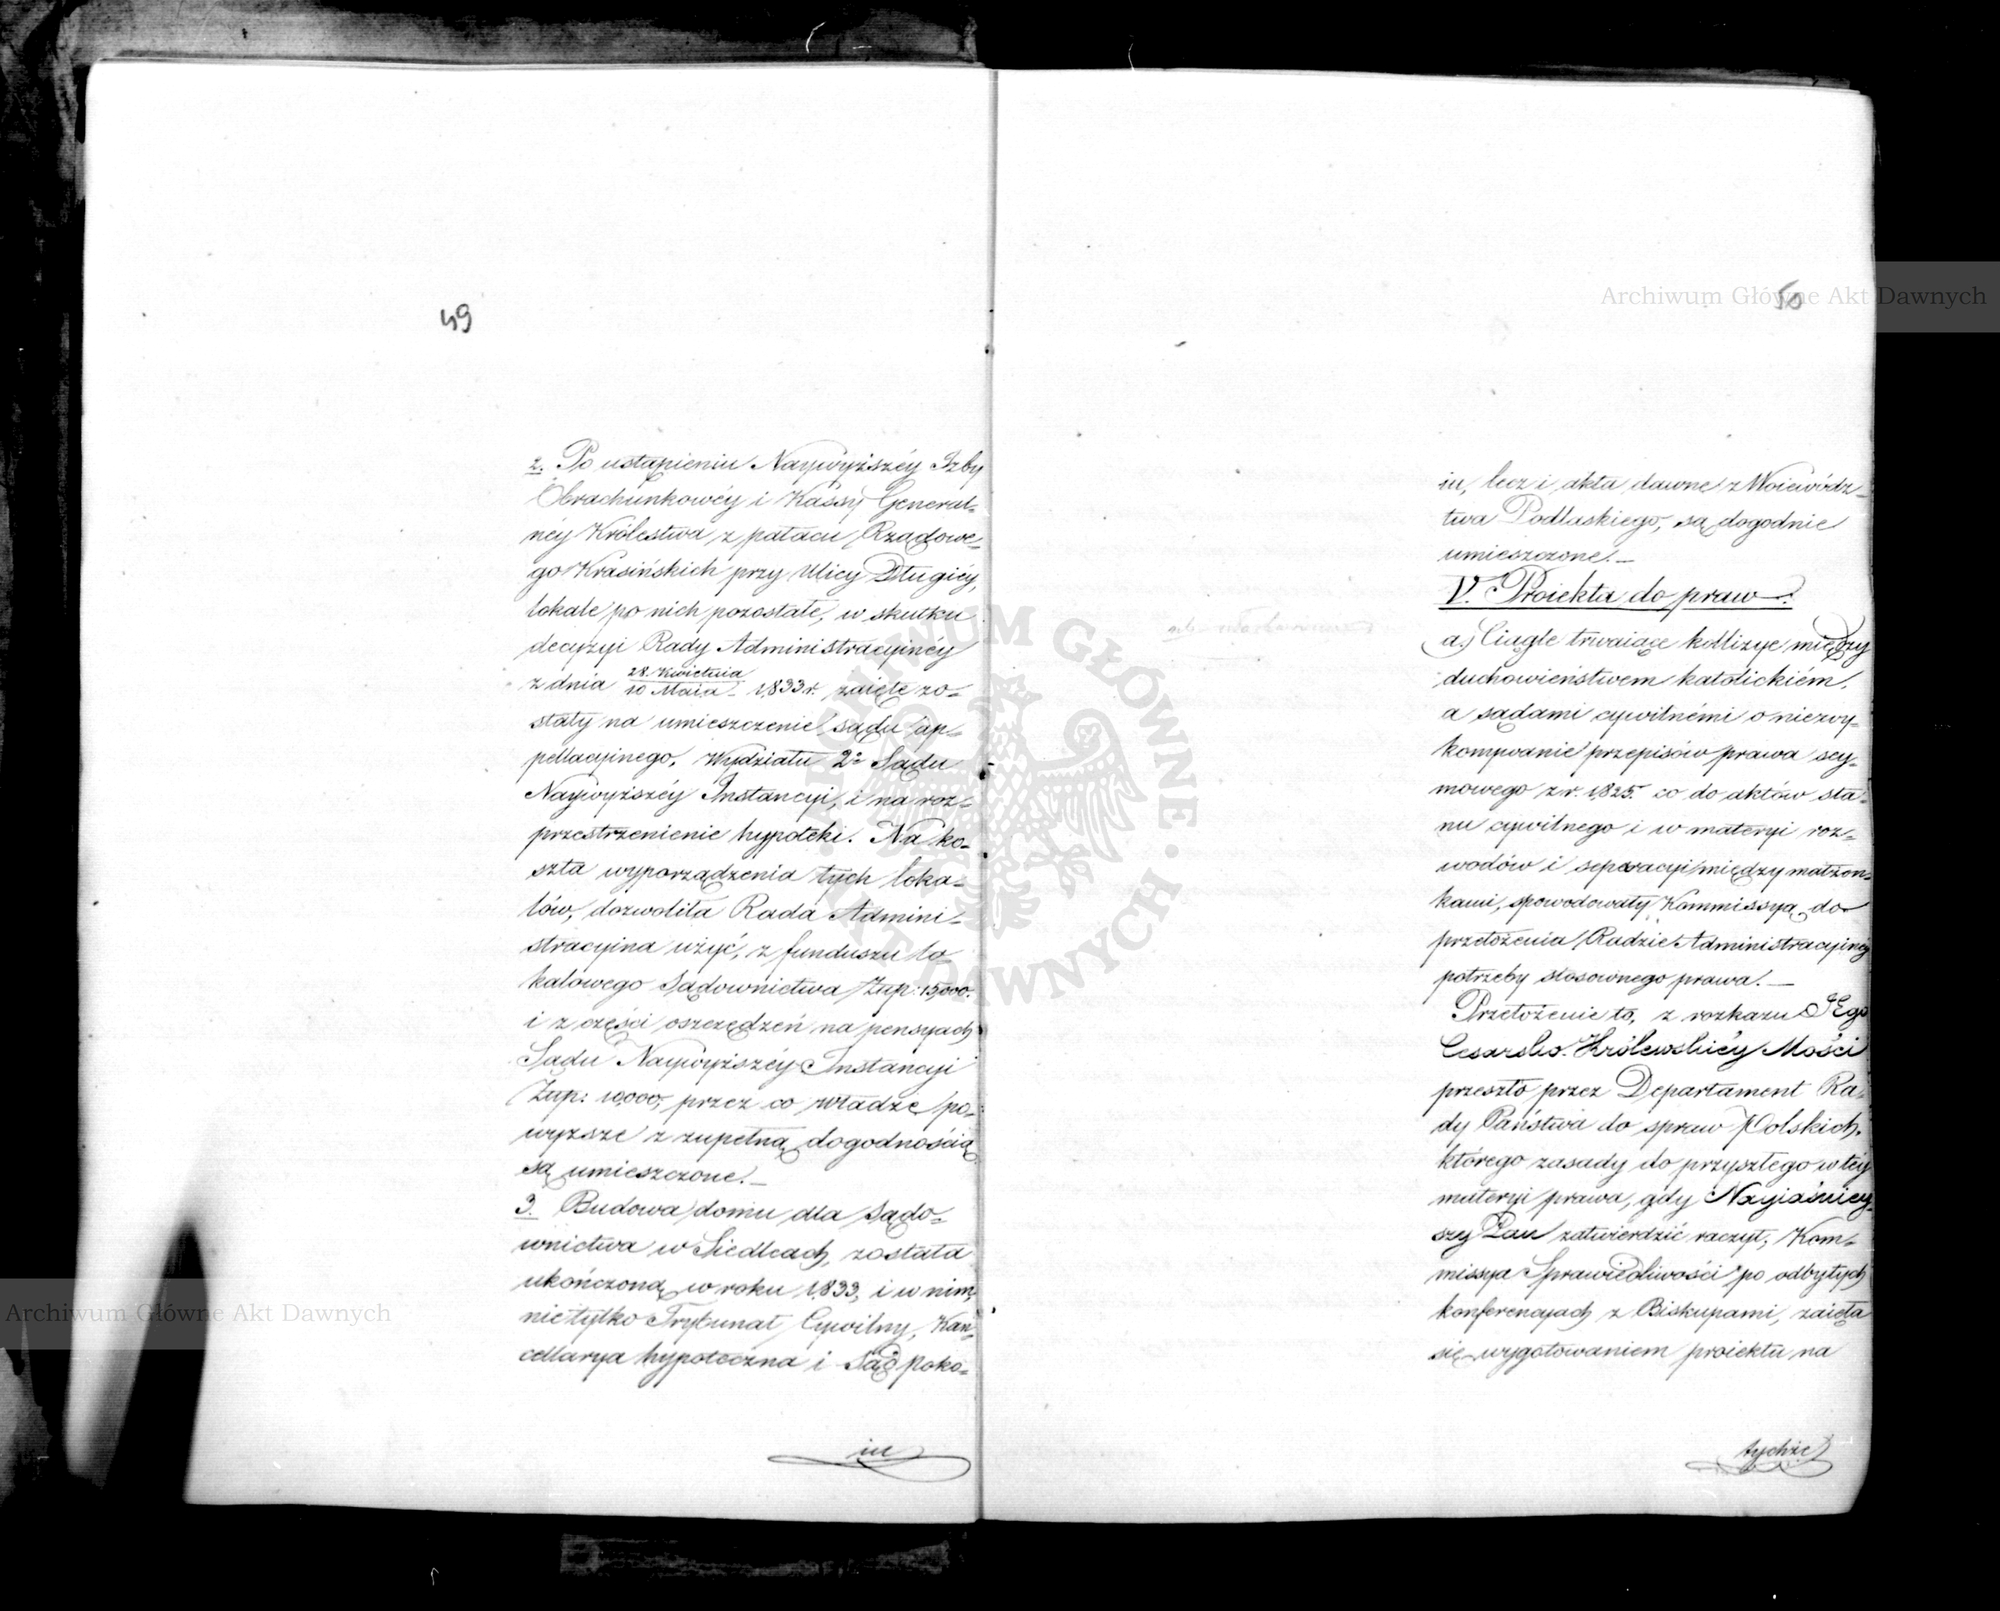 49
2. Po ustąpieniu Naywyższéy Izby
Obrachunkowéy i Kassy General-
néy Królestwa z pałacu Rządowe-
go Krasińskich przy Ulicy Długiéy,
lokale po nich pozostałe, w skutku
decyzyi Rady Administracyinéy
z dnia 28. Kwietnia / 10 Maia 1833 r. zaięte zo-
stały na umieszczenie sądu ap-
pellacyinego, Wydziału 2º Sądu
Naywyższéy Instancyi, i na roz-
przestrzenienie hypoteki. Na ko-
szta wyporządzenia tych loka-
lów, dozwoliła Rada Admini-
stracyina użyć, z funduszu lo-
kalowego Sądownictwa Złłp: 15,000.
i z części oszczędzeń na pensyach
Sądu Naywyższéy Instancyi
Złłp: 10,000, przez co władze po-
wyższe z zupełną dogodnością
są umieszczone. —
3. Budowa domu dla Sądo-
wnictwa w Siedlcach, została
ukończoną w roku 1833, i w nim
nietylko Trybunał Cywilny, Kan-
cellarya hypoteczna i Sąd Poko-
iu
50
iu, lecz i akta dawne z Woiewódz-
twa Podlaskiego, są dogodnie
umieszczone. —
V. Proiekta do praw.
a.) Ciągle trwaiące kollizye między
duchowieństwem katolickiém,
a sądami cywilnémi o niewy-
konywanie przepisów prawa sey-
mowego z r. 1825. co do aktów sta-
nu cywilnego i w materyi roz-
wodów i separacyi między małżon-
kami, spowodowały Kommissyą do
przełożenia Radzie Administracyinéy
potrzeby stosownego prawa. —
Przełożenie to, z rozkazu JEgo
Cesarsko-Królewskiéy Mości
przeszło przez Departament Ra-
dy Państwa do spraw Polskich,
którego zasady do przyszłego w téy
materyi prawa, gdy Nayiaśniey-
szy Pan zatwierdzić raczył, Kom-
missya Sprawiedliwości po odbytych
konferencyach z Biskupami, zaięła
się wygotowaniem proiektu na
tychże
Archiwum Główne Akt Dawnych
Archiwum Główne Akt Dawnych
ARCHIWUM GŁÓWNE AKT DAWNYCH